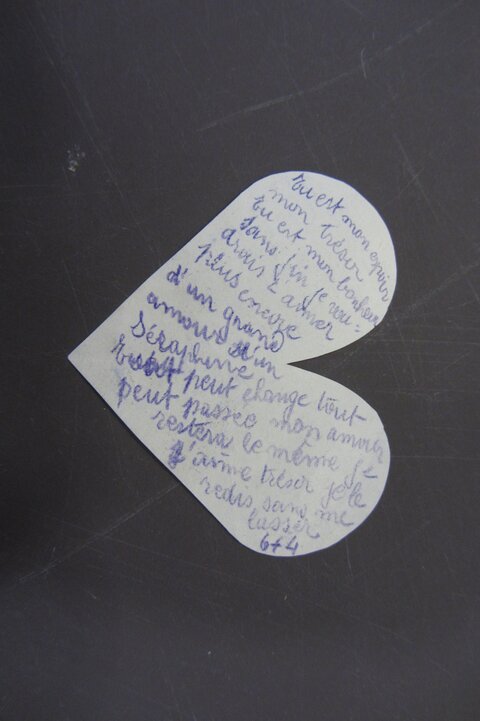 tu est mon espoir
mon trésor
tu est mon bonheur
sans fin je vou-
drais t'aimer
plus encore
d'un grand
amour d'un
Séraphin
tout peut change tout
peut passée mon amour
restera le même je
t'aime trésor je le
redis sans me
lasser
6+4